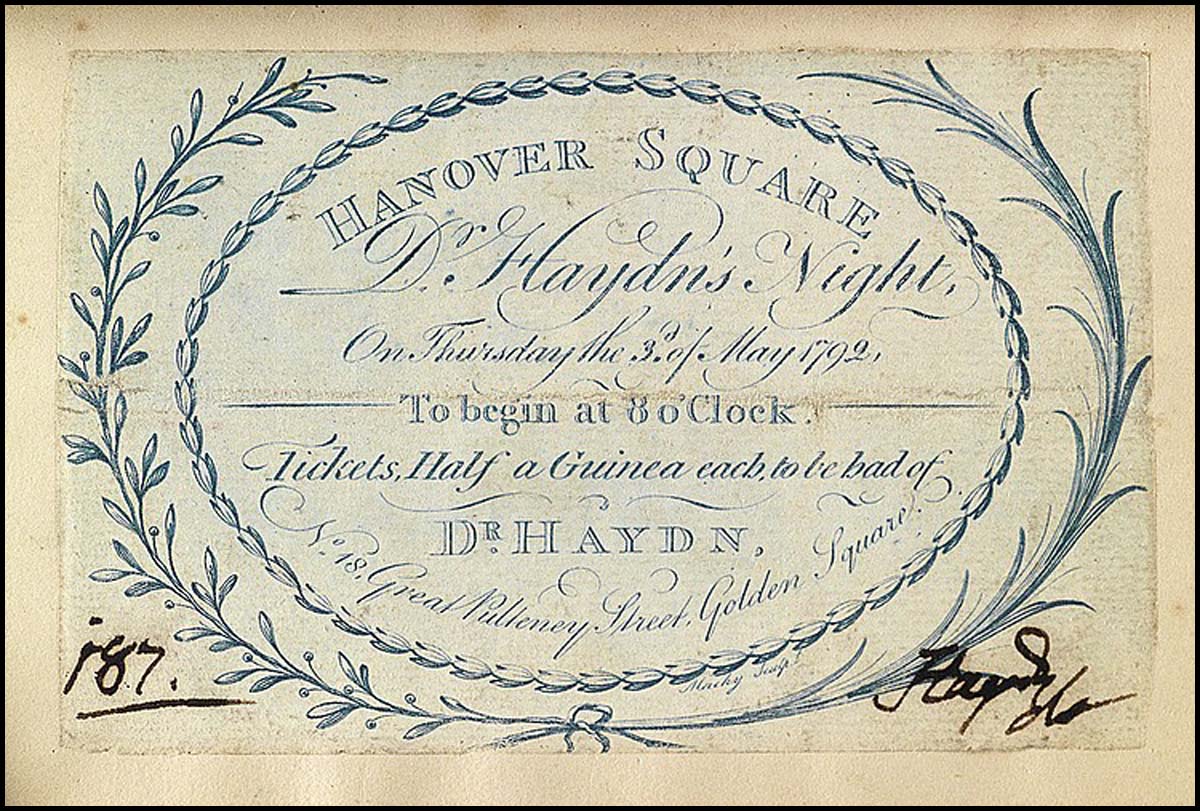 HANOVER SQUARE
Dr. Haydn's Night,
On Thursday the 3d. of May 1792,
To begin at 8 o'Clock.
Tickets, Half a Guinea each, to be had of
DR. HAYDN,
No. 18, Great Pulteney Street, Golden Square.
Macky Sculp.
187.
Haydn